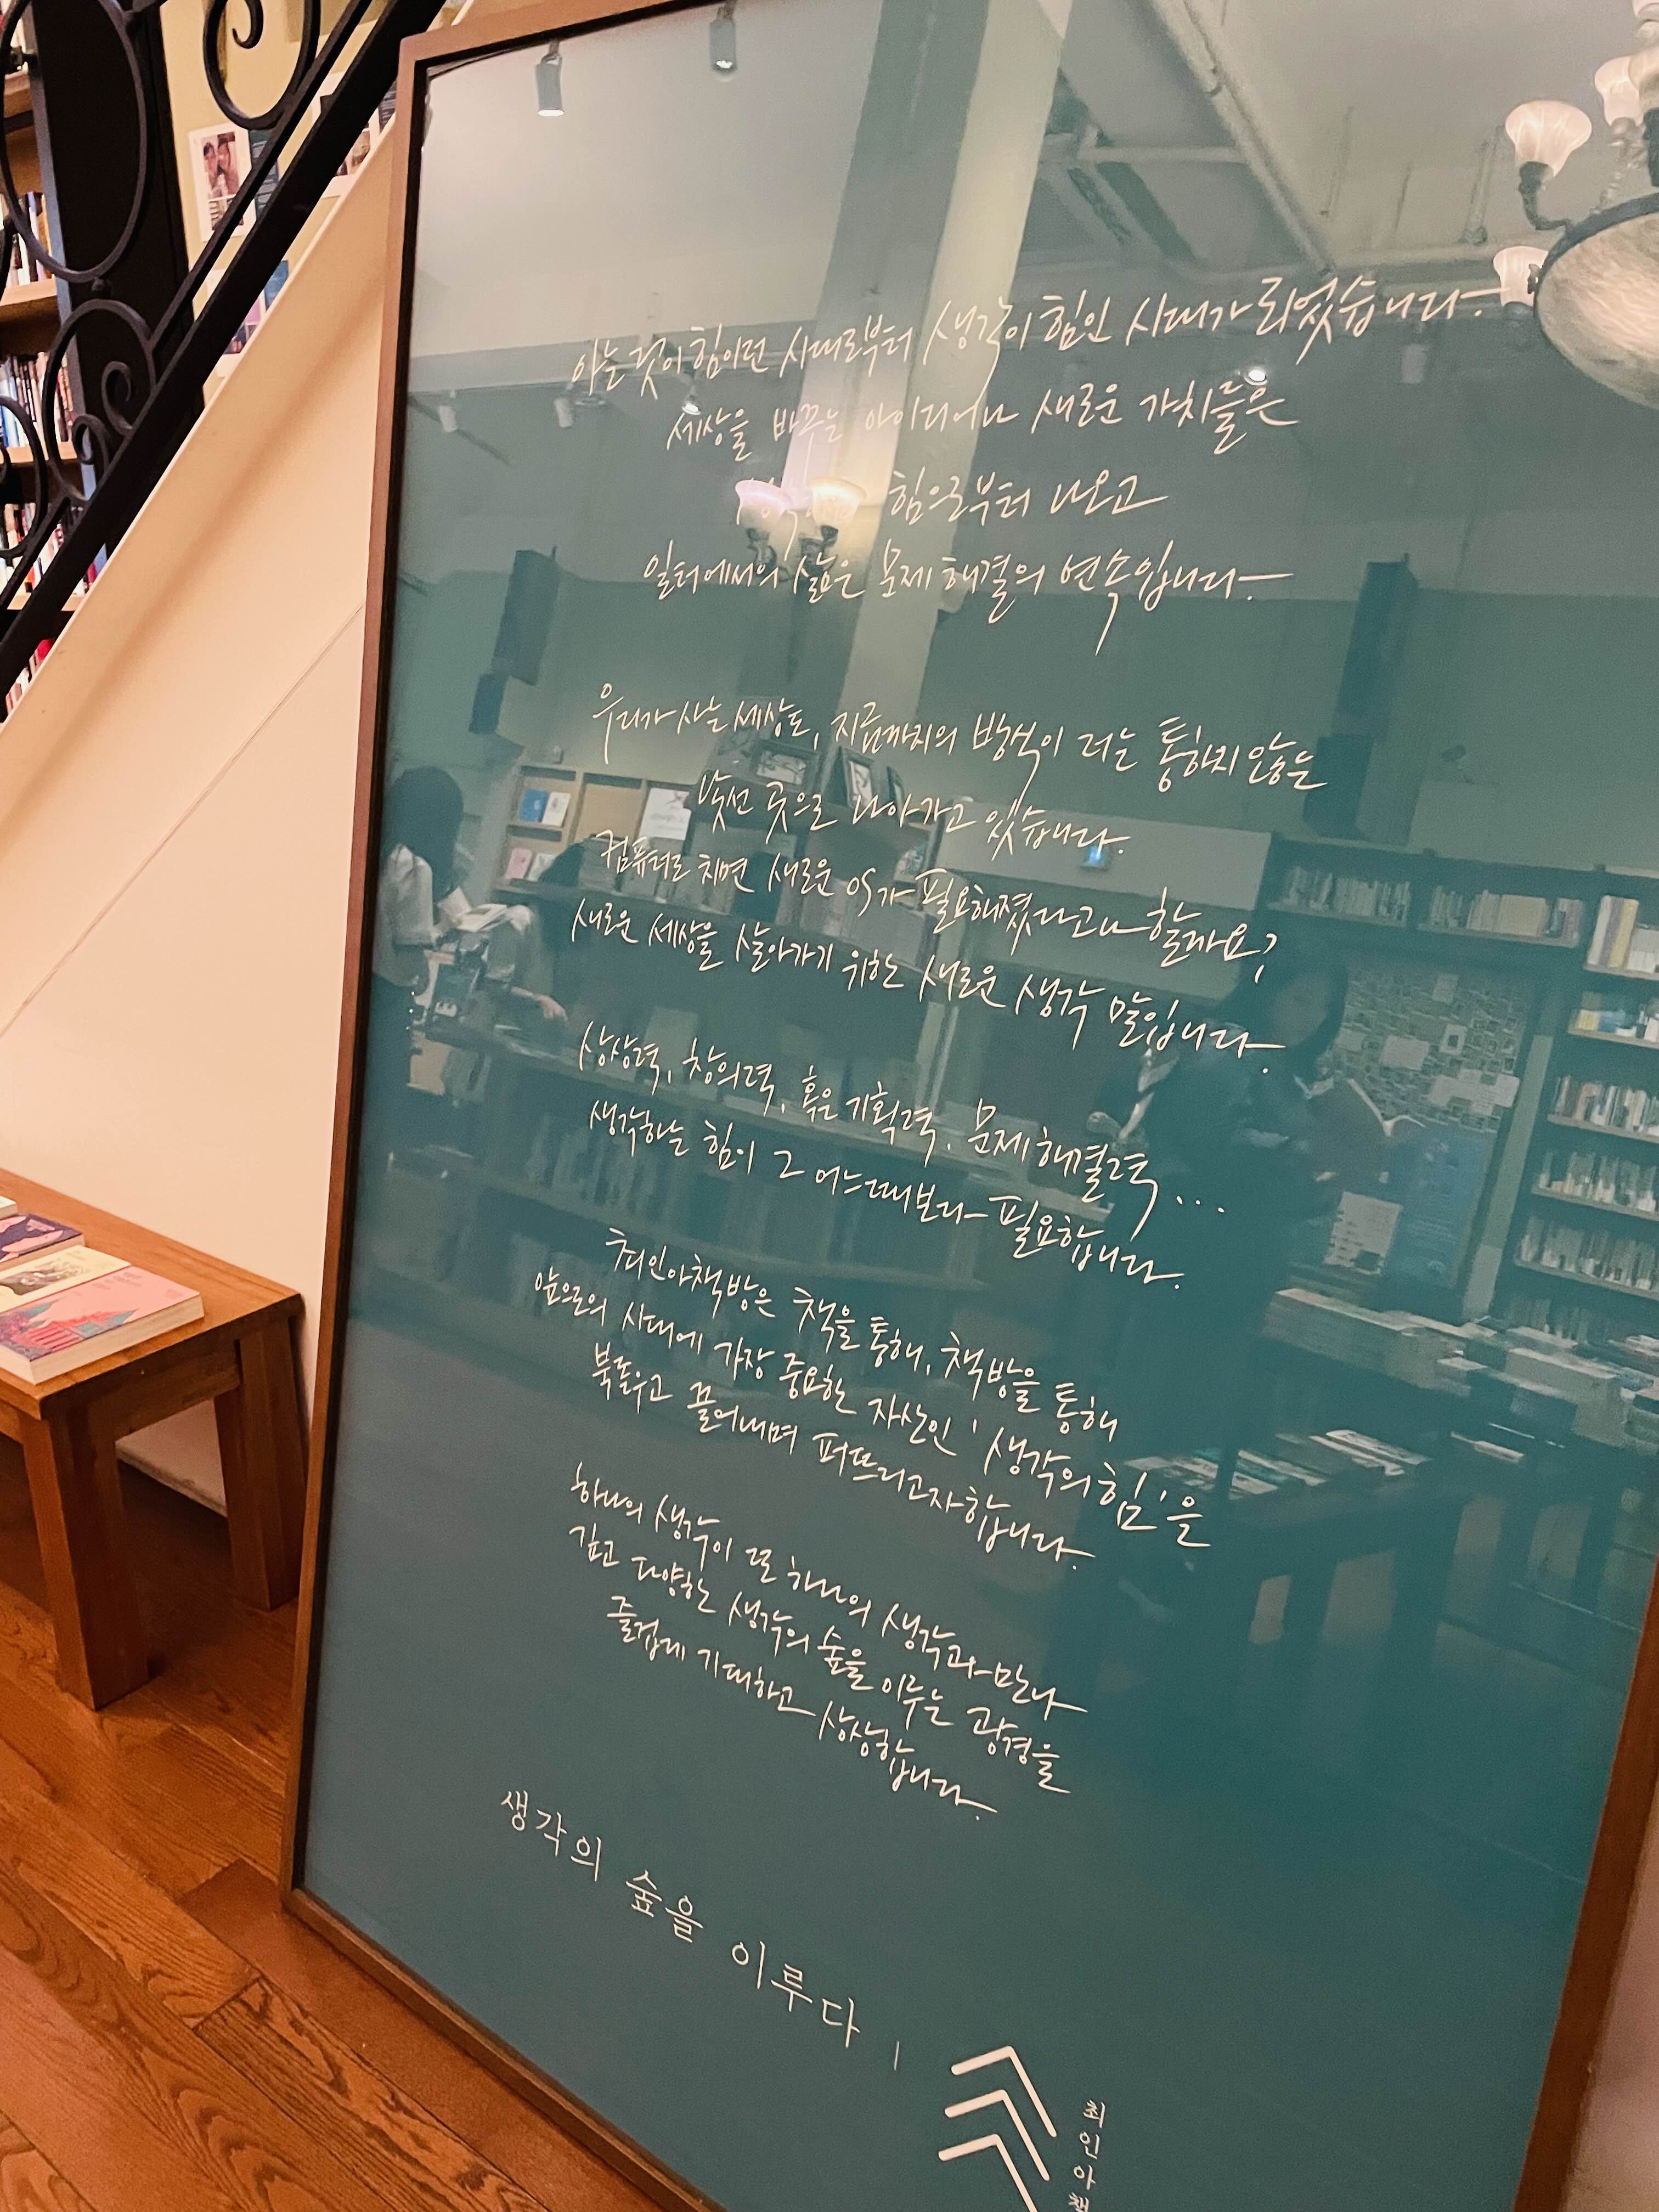 아는 것이 힘이던 시대로부터 생각이 힘인 시대가 되었습니다.
세상을 바꾸는 아이디어나 새로운 가치들은
힘으로부터 나오고
일터에서의 삶은 문제 해결의 연속입니다.
우리가 사는 세상도, 지금까지의 방식이 더는 통하지 않는
낯선 곳으로 나아가고 있습니다.
컴퓨터로 치면 새로운 OS가 필요해졌다고나 할까요?
새로운 세상을 살아가기 위한 새로운 생각 말입니다.
상상력, 창의력, 혹은 기획력, 문제해결력...
생각하는 힘이 그 어느때보다 필요합니다.
최인아책방은 책을 통해, 책방을 통해
앞으로의 시대에 가장 중요한 자산인 '생각의 힘'을
북돋우고 끌어내며 퍼뜨리고자 합니다.
하나의 생각이 또 하나의 생각과 만나
깊고 다양한 생각의 숲을 이루는 광경을
즐겁게 기대하고 상상합니다.
생각의 숲을 이루다 |
최인아책